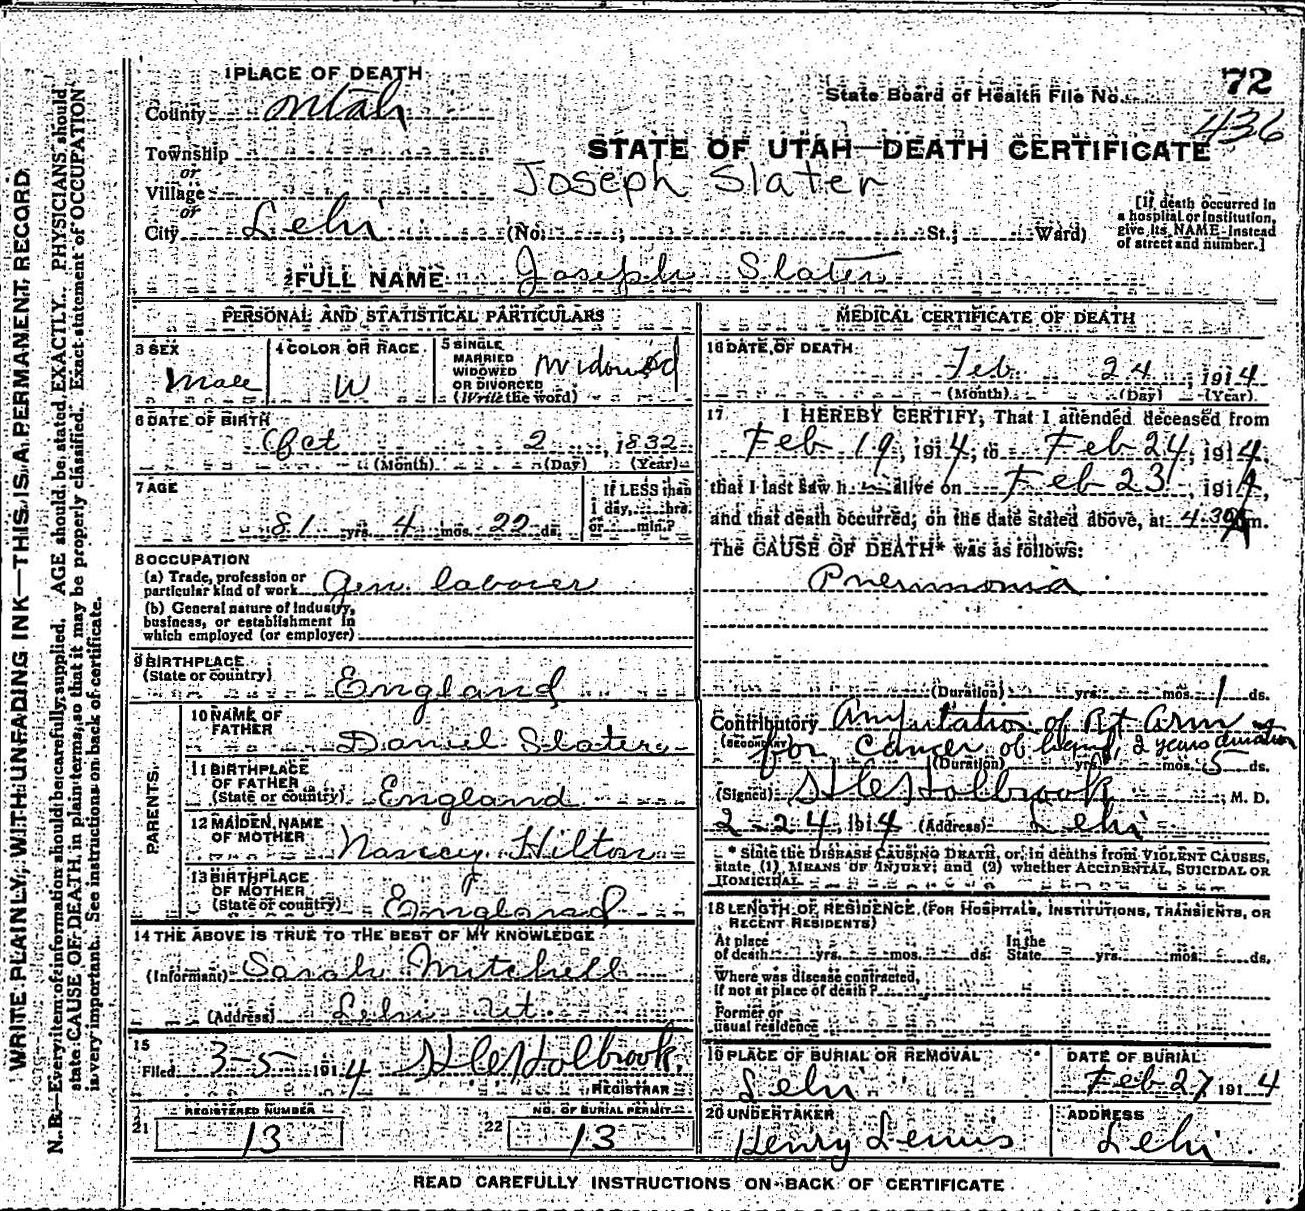 1 PLACE OF DEATH
72
State Board of Health File No.
436
County Utah
Township
or
Village
or
City Lehi
STATE OF UTAH—DEATH CERTIFICATE
Joseph Slater
(No. ; St.; Ward)
[If death occurred in
a hospital or institution,
give its NAME instead
of street and number.]
2 FULL NAME Joseph Slater
PERSONAL AND STATISTICAL PARTICULARS
3 SEX
Male
4 COLOR OR RACE
W
5 SINGLE
MARRIED
WIDOWED
OR DIVORCED
(Write the word)
Widowed
6 DATE OF BIRTH
Oct 2, 1832
(Month) (Day) (Year)
7 AGE
81 yrs. 4 mos. 22 ds.
If LESS than
1 day, hrs.
or min.?
8 OCCUPATION
(a) Trade, profession or
particular kind of work Gen laborer
(b) General nature of Industry,
business, or establishment in
which employed (or employer)
9 BIRTHPLACE
(State or country) England
PARENTS
10 NAME OF
FATHER Daniel Slater
11 BIRTHPLACE
OF FATHER
(State or country) England
12 MAIDEN NAME
OF MOTHER Nancy Hilton
13 BIRTHPLACE
OF MOTHER
(State or country) England
14 THE ABOVE IS TRUE TO THE BEST OF MY KNOWLEDGE
(Informant) Sarah Mitchell
(Address) Lehi Ut.
15
Filed 3-5 1914 Holbrook
REGISTRAR
21 REGISTERED NUMBER
13
22 NO. OF BURIAL PERMIT
13
MEDICAL CERTIFICATE OF DEATH
16 DATE OF DEATH
Feb 24, 1914
(Month) (Day) (Year)
17 I HEREBY CERTIFY, That I attended deceased from
Feb 19, 1914, to Feb 24, 1914,
that I last saw h alive on Feb 23, 1914,
and that death occurred, on the date stated above, at 4:30 A m.
The CAUSE OF DEATH* was as follows:
Pneumonia
(Duration) yrs. mos. 1 ds.
Contributory Amputation of Rt Arm
(SECONDARY) for Cancer of hand, 2 years duration
(Duration) yrs. mos. 5 ds.
(Signed) Holbrook, M. D.
2-24, 1914 (Address) Lehi
* State the DISEASE CAUSING DEATH, or, in deaths from VIOLENT CAUSES,
state (1) MEANS OF INJURY; and (2) whether ACCIDENTAL, SUICIDAL OR
HOMICIDAL
18 LENGTH OF RESIDENCE (FOR HOSPITALS, INSTITUTIONS, TRANSIENTS, OR
RECENT RESIDENTS)
At place
of death yrs. mos. ds.
In the
State yrs. mos. ds.
Where was disease contracted,
If not at place of death?
Former or
usual residence
19 PLACE OF BURIAL OR REMOVAL
Lehi
DATE OF BURIAL
Feb 27 1914
20 UNDERTAKER
Henry Lewis
ADDRESS
Lehi
READ CAREFULLY INSTRUCTIONS ON BACK OF CERTIFICATE
WRITE PLAINLY, WITH UNFADING INK—THIS IS A PERMANENT RECORD
N. B.—Every item of information should be carefully supplied. AGE should be stated EXACTLY. PHYSICIANS should
state CAUSE OF DEATH in plain terms, so that it may be properly classified. Exact statement of OCCUPATION
is very important. See instructions on back of certificate.